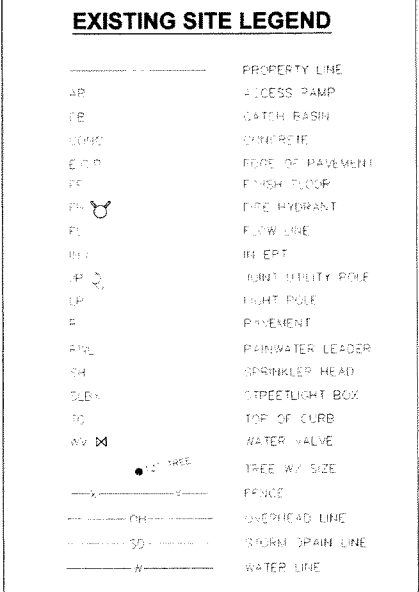 EXISTING SITE LEGEND
PROPERTY LINE
AR ACCESS RAMP
CB CATCH BASIN
CONC CONCRETE
E.O.P. EDGE OF PAVEMENT
FF FINISH FLOOR
FH FIRE HYDRANT
FL FLOW LINE
INV INVERT
JP JOINT UTILITY POLE
LP LIGHT POLE
P PAVEMENT
RWL RAINWATER LEADER
SH SPRINKLER HEAD
SLBX STREETLIGHT BOX
TC TOP OF CURB
WV WATER VALVE
12" TREE TREE W/ SIZE
X X FENCE
OH OVERHEAD LINE
SD STORM DRAIN LINE
W WATER LINE